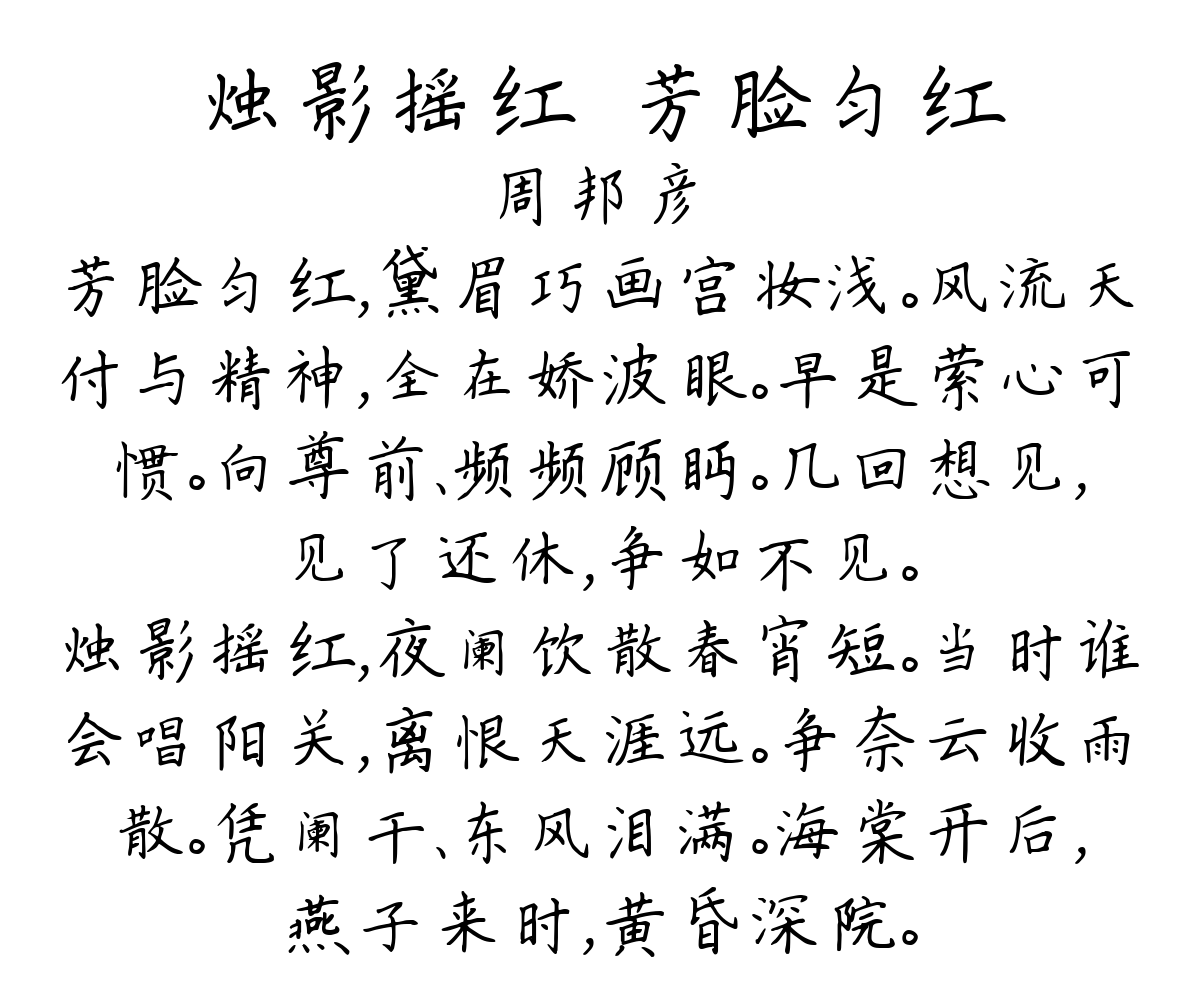 烛影摇红 芳脸匀红
周邦彦
芳脸匀红,黛眉巧画宫妆浅。风流天
付与精神,全在娇波眼。早是萦心可
惯。向尊前、频频顾眄。几回想见,
见了还休,争如不见。
烛影摇红,夜阑饮散春宵短。当时谁
会唱阳关,离恨天涯远。争奈云收雨
散。凭阑干、东风泪满。海棠开后,
燕子来时,黄昏深院。